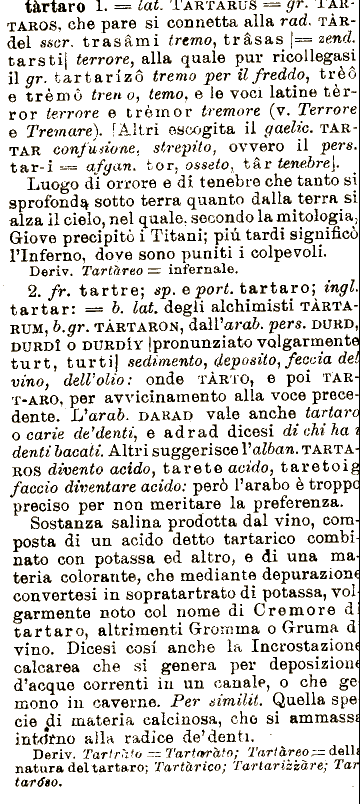 tàrtaro 1. = lat. TARTARUS = gr. TÀR-
TAROS, che pare si connetta alla rad. TÀR-
del sscr. trasâmi tremo, trâsas [= zend.
tarsti] terrore, alla quale pur ricollegasi
il gr. tartarízô tremo per il freddo, trèô
e trèmô tremo, temo, e le voci latine tèr-
ror terrore e trèmor tremore (v. Terrore
e Tremare). [Altri escogita il gaelic. TAR-
TAR confusione, strepito, ovvero il pers.
tar-i = afgan. tor, osseto, târ tenebre].
Luogo di orrore e di tenebre che tanto si
sprofonda sotto terra quanto dalla terra si
alza il cielo, nel quale, secondo la mitologia,
Giove precipitò i Titani; piú tardi significò
l'Inferno, dove sono puniti i colpevoli.
Deriv. Tartàreo = infernale.
2. fr. tartre; sp. e port. tartaro; ingl.
tartar: = b. lat. degli alchimisti TÀRTA-
RUM, b. gr. TÀRTARON, dall'arab. pers. DURD,
DURDÎ o DURDÍY [pronunziato volgarmente
turt, turti] sedimento, deposito, feccia del
vino, dell'olio: onde TÀRTO, e poi TAR-
T-ARO, per avvicinamento alla voce prece-
dente. L'arab. DARAD vale anche tartaro
o carie de'denti, e adrad dicesi di chi ha i
denti bacati. Altri suggerisce l'alban. TARTA-
ROS divento acido, tarete acido, taretoig
faccio diventare acido: però l'arabo è troppo
preciso per non meritare la preferenza.
Sostanza salina prodotta dal vino, com-
posta di un acido detto tartarico combi-
nato con potassa ed altro, e di una ma-
teria colorante, che mediante depurazione
convertesi in sopratartrato di potassa, vol-
garmente noto col nome di Cremore di
tartaro, altrimenti Gromma o Gruma di
vino. Dicesi cosí anche la Incrostazione
calcarea che si genera per deposizione
d'acque correnti in un canale, o che ge-
mono in caverne. Per similit. Quella spe-
cie di materia calcinosa, che si ammassa
intorno alla radice de'denti.
Deriv. Tartràto = Tartaràto; Tartàreo = della
natura del tartaro; Tartàrico; Tartarizzàre; Tar-
taróso.